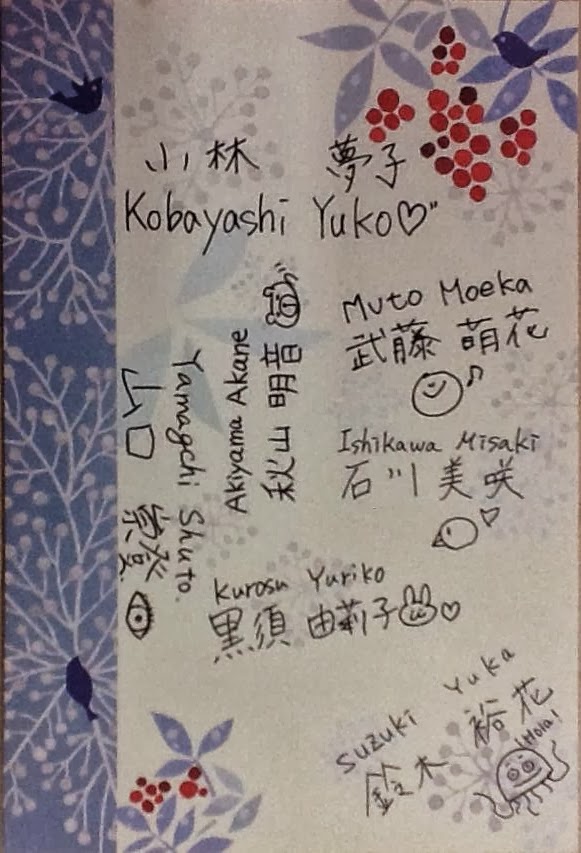 小林 夢子
Kobayashi Yuko♡"
Muto Moeka
武藤 萌花
Akiyama Akane
秋山 明音
Yamagchi Shuto.
山口
Ishikawa Misaki
石川 美咲
Kurosu Yuriko
黒須 由莉子
Suzuki Yuka
鈴木 裕花
¡Hola!